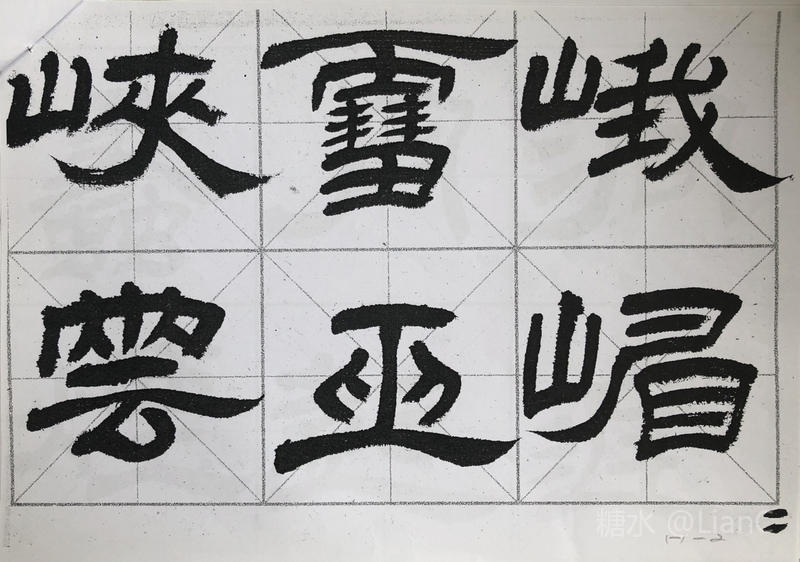 峨嵋
雪巫
峽雲
二
糖水 @Lian